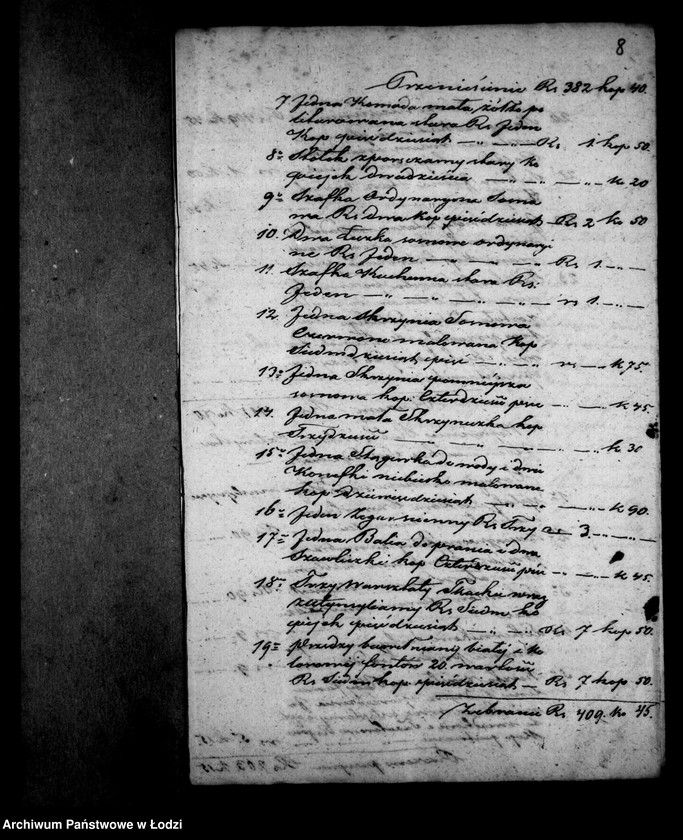 8
Przeniesienie Rs 382 kop 40.
7. Jedna Komoda mała, żółto po
liturowana stara Rs Jeden
Kop pięćdziesiąt — „ — „ — Rs 1 kop 50.
8= Stołek stary ko
piejek dwadzieścia — „ — „ — „ — k 20
9= Szafka Ordynaryjna Sosno
wa Rs dwa kop pięćdziesiąt — Rs 2 ko 50
10. Dwa Łóżka sosnowe ordynaryj
ne Rs Jeden — „ — „ — „ — Rs 1. — „ —
11. Szafka Kuchenna stara Rs:
Jeden — „ — „ — „ — rs 1. — „ —
12. Jedna Skrzynia Sosnowa
Czerwono malowana Kop
Siedmdziesiąt pięć — „ — „ — rs — „ — k 75
13= Jedna Skrzynia pomniejsza
sosnowa kop. Czterdzieści pięć — „ — „ — k 45.
14. Jedna mała Skrzyneczka kop
Trzydzieści — „ — „ — „ — k 30
15= Jedna Stągiewka do wody i dwie
Konefki niebiesko malowane
kop Dziewięćdziesiąt — „ — „ — „ — k 90.
16= Jeden Zegar ścienny Rs Trzy rs 3. — „ —
17= Jedna Balia do prania i dwa
Szafliczki kop Czterdzieści pięć — „ — „ — k 45.
18= Trzy Warsztaty Tkackie wraz
z utensyliami Rs Siedm ko
piejek pięćdziesiąt — „ — „ — Rs 7 kop 50.
19= Przędzy bawełnianej białej i ko
lorowej funtów 20. wartości
Rs Siedm kop pięćdziesiąt — Rs 7 kop 50.
Zebranie Rs 409. ko 45.
Archiwum Państwowe w Łodzi